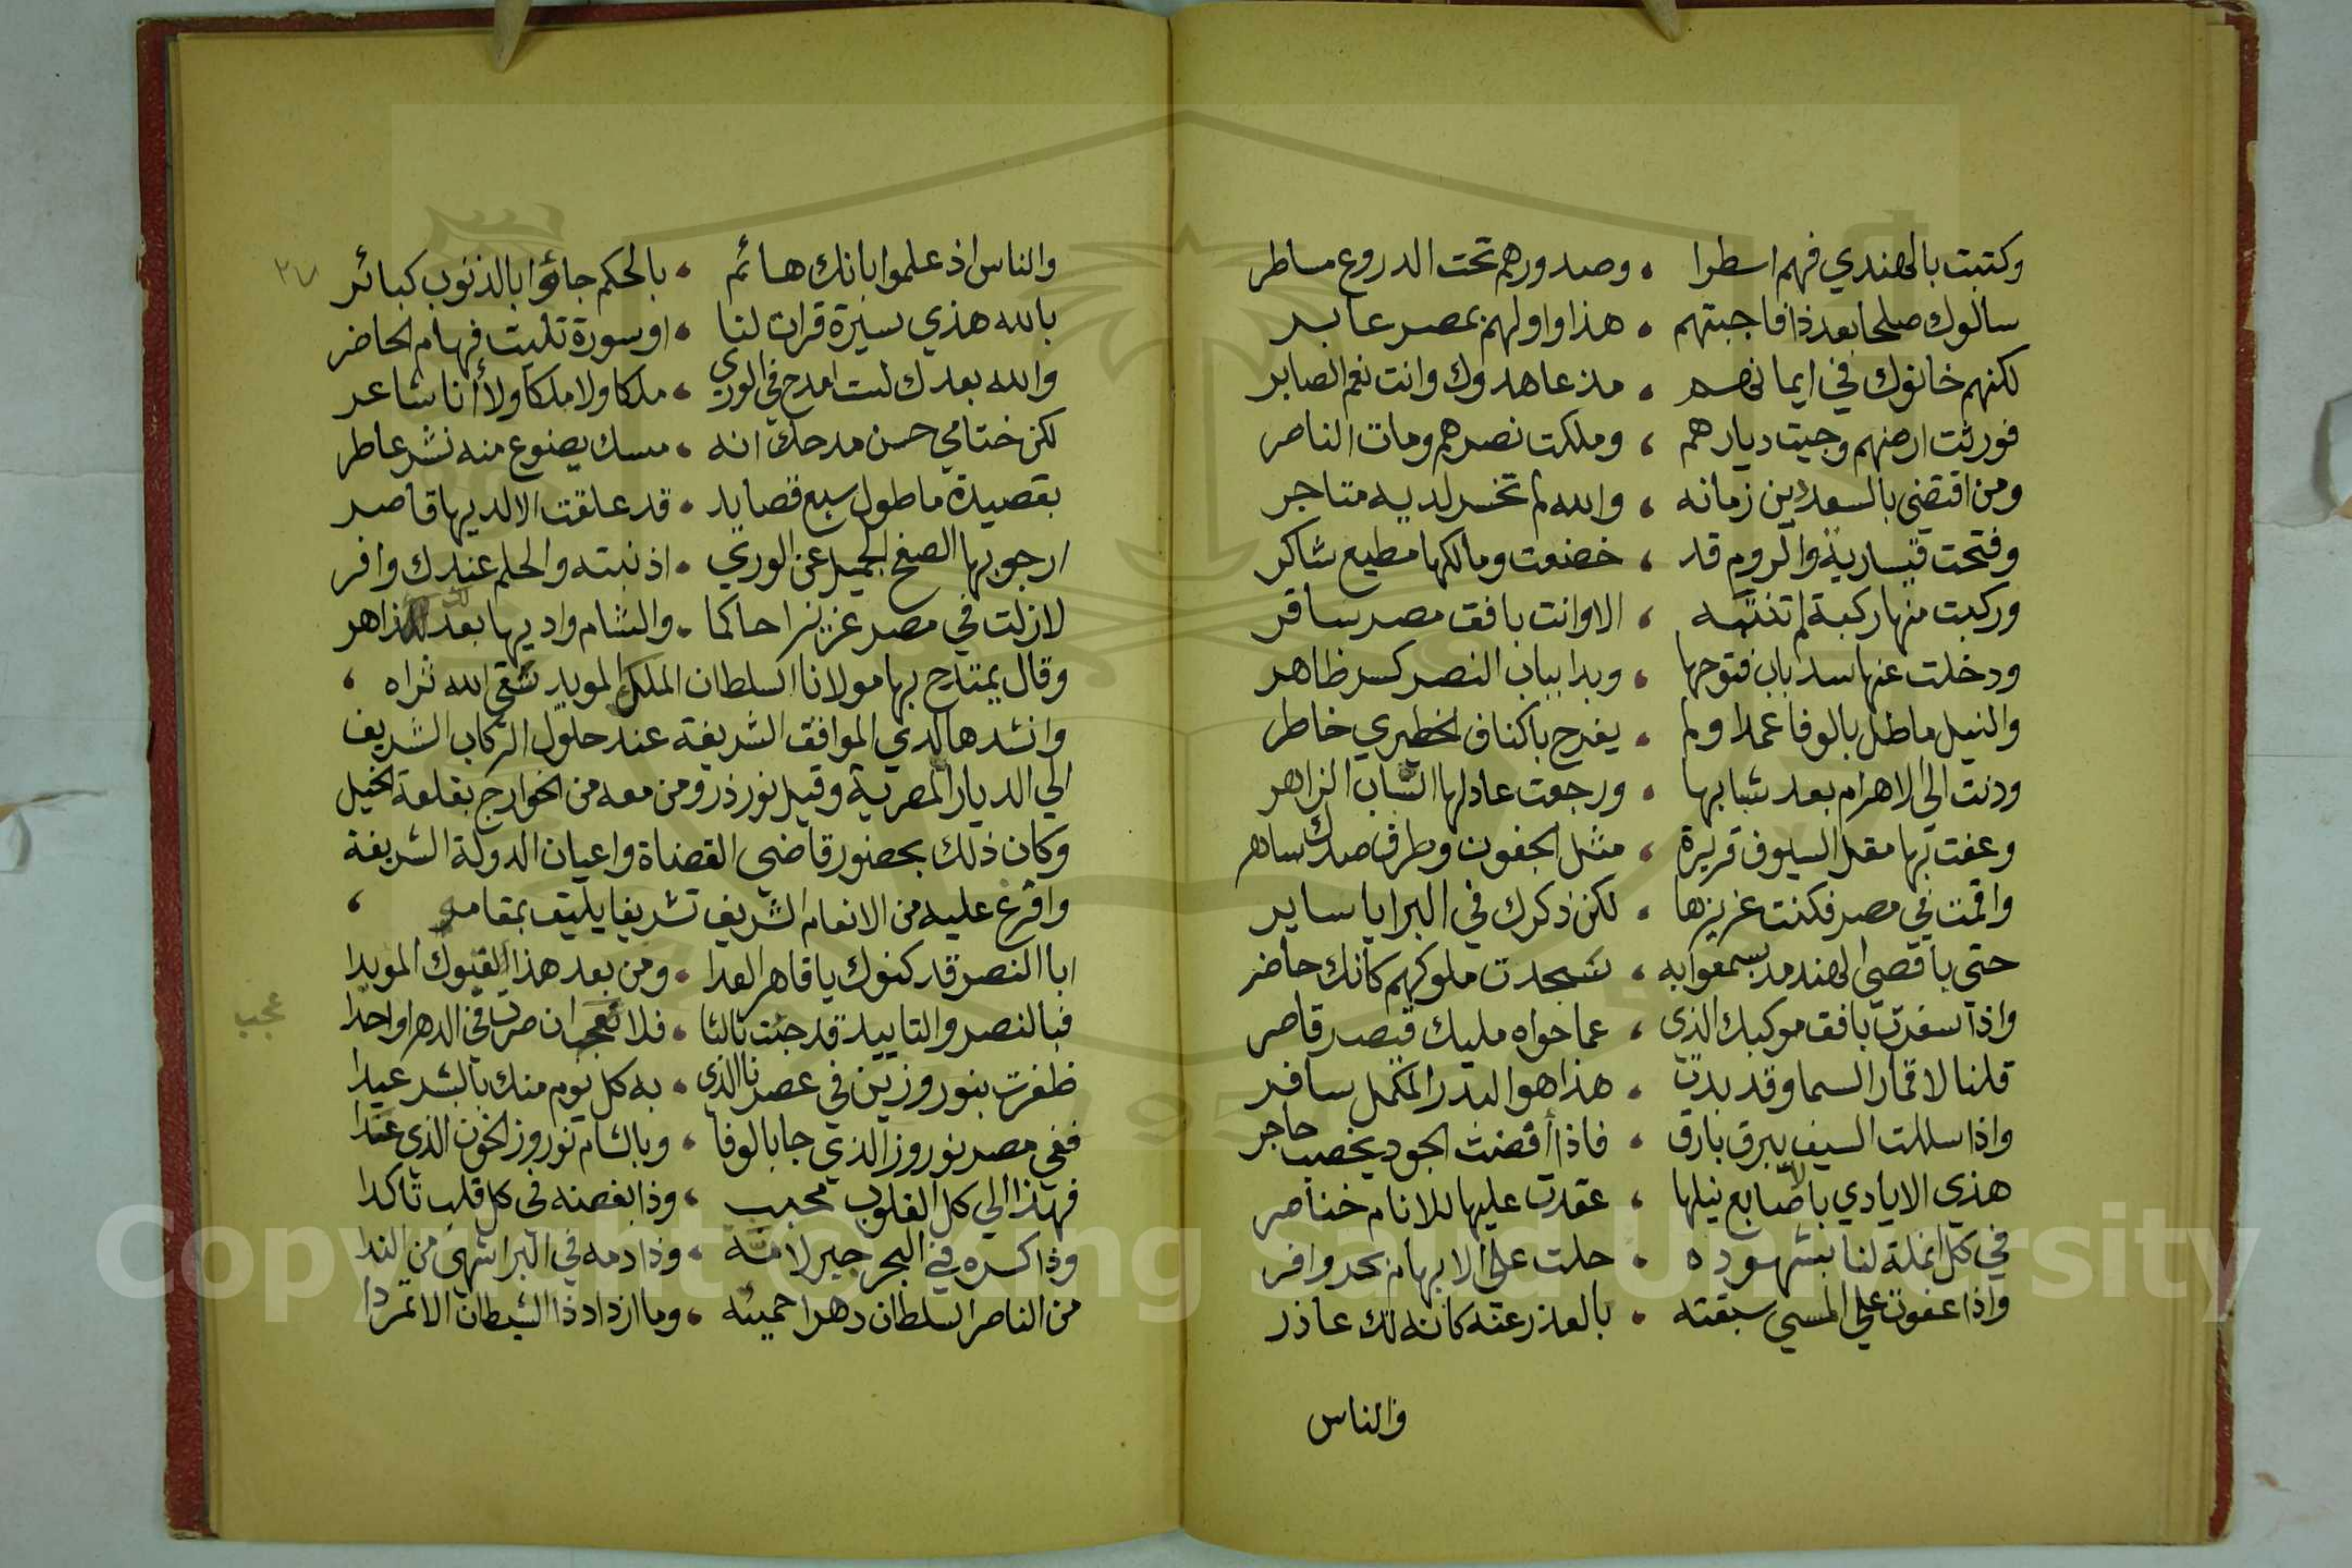 وكتبت بالهندي فيهم اسطرا ، وصدورهم تحت الدروع مساطر
سالوك صلحا بعد ذا فاجبتهم ، هذا واولهم بمصر عابر
لكنهم خانوك في ايمانهم ، مذ عاهدوك وانت نعم الصابر
فورثت ارضهم وجيت ديارهم ، وملكت نصرهم ومات الناصر
ومن اقتضى بالسعد دين زمانه ، والله لم تخسر لديه متاجر
وفتحت قيسارية والروم قد ، خضعت ومالكها مطيع شاكر
وركبت منها ركبة لم تنتبه ، الا وانت بافق مصر سافر
ودخلت عنها سد باب فتوحها ، وبدا بباب النصر كسر ظاهر
والنيل ماطل بالوفا عمدا ولم ، يفرح باكناف الخطيري خاطر
ودنت الى الاهرام بعد شبابها ، ورجعت عاد لها الشباب الزاهر
وعفت بها مقل السيوف قريرة ، مثل الجفون وطرف صدك ساهر
واقمت في مصر فكنت عزيزها ، لكن ذكرك في البرايا ساير
حتي باقصى الهند مذ سمعوا به ، سجدت ملوكهم كانك حاضر
واذا سفرت بافق موكبك الذي ، عما حواه مليك قيصر قاصر
قلنا لاقمار السما وقد بدت ، هذا هو البدر المكمل سافر
واذا سللت السيف يبرق بارق ، فاذا أفضت الجود يخصب حاجر
هذي الايادي بالاصابع نيلها ، عقدت عليها للانام خناصر
في كل انملة لنا بشهوده ، حلت على الابهام بحر وافر
واذا عفوت على المسي سبقته ، بالعذر عنه كانه لك عاذر
والناس
والناس اذ علموا بانك هائم ، بالحكم جاؤا بالذنوب كبائر
بالله هذي سيرة قران لنا ، او سورة تليت فهام الحاضر
والله بعدك لست امدح في الوري ، ملكا ولا ملكا ولا أنا شاعر
لكن ختامي حسن مدحك انه ، مسك يضوع منه نشر عاطر
بقصيدة ما طول سبع قصايد ، قد علقت الا لديها قاصر
ارجو بها الصفح الجميل عن الوري ، اذنبته والحلم عندك وافر
لازلت في مصر عزيزا حاكما ، والشام واديها بعدلك زاهر
وقال يمتدح بها مولانا السلطان الملك المويد سقى الله ثراه ،
وانشدها لدي المواقف الشريفة عند حلول الركاب الشريف
الي الديار المصرية وقيل نورذر ومن معه من الخوارج بقلعة الخيل
وكان ذلك بحضور قاضي القضاة واعيان الدولة الشريفة
وافرغ عليه من الانعام الشريف تشريفا يليق بمقامه ،
ابا النصر قد كنوك يا قاهر العدا ، ومن بعد هذا لقبوك المويدا
فبالنصر والتاييد قد جئت ثالثا ، فلا تعجبا ان صرت في الدهر اوحدا
عجب
ظفرت بنوروزين في عصرنا الذي ، به كل يوم منك بالبشر عيدا
ففي مصر نوروز الذي جا بالوفا ، وبالشام نوروز الخون الذي عتدا
فهذا الي كل القلوب محبب ، وذا بغضه في كل قلب تاكدا
وذا كسره في البحر جبر لامة ، وذا دمه في البر اشهى من الندا
من الناصر السلطان دهرا حميته ، وما ازداد ذا الشيطان الا تمردا